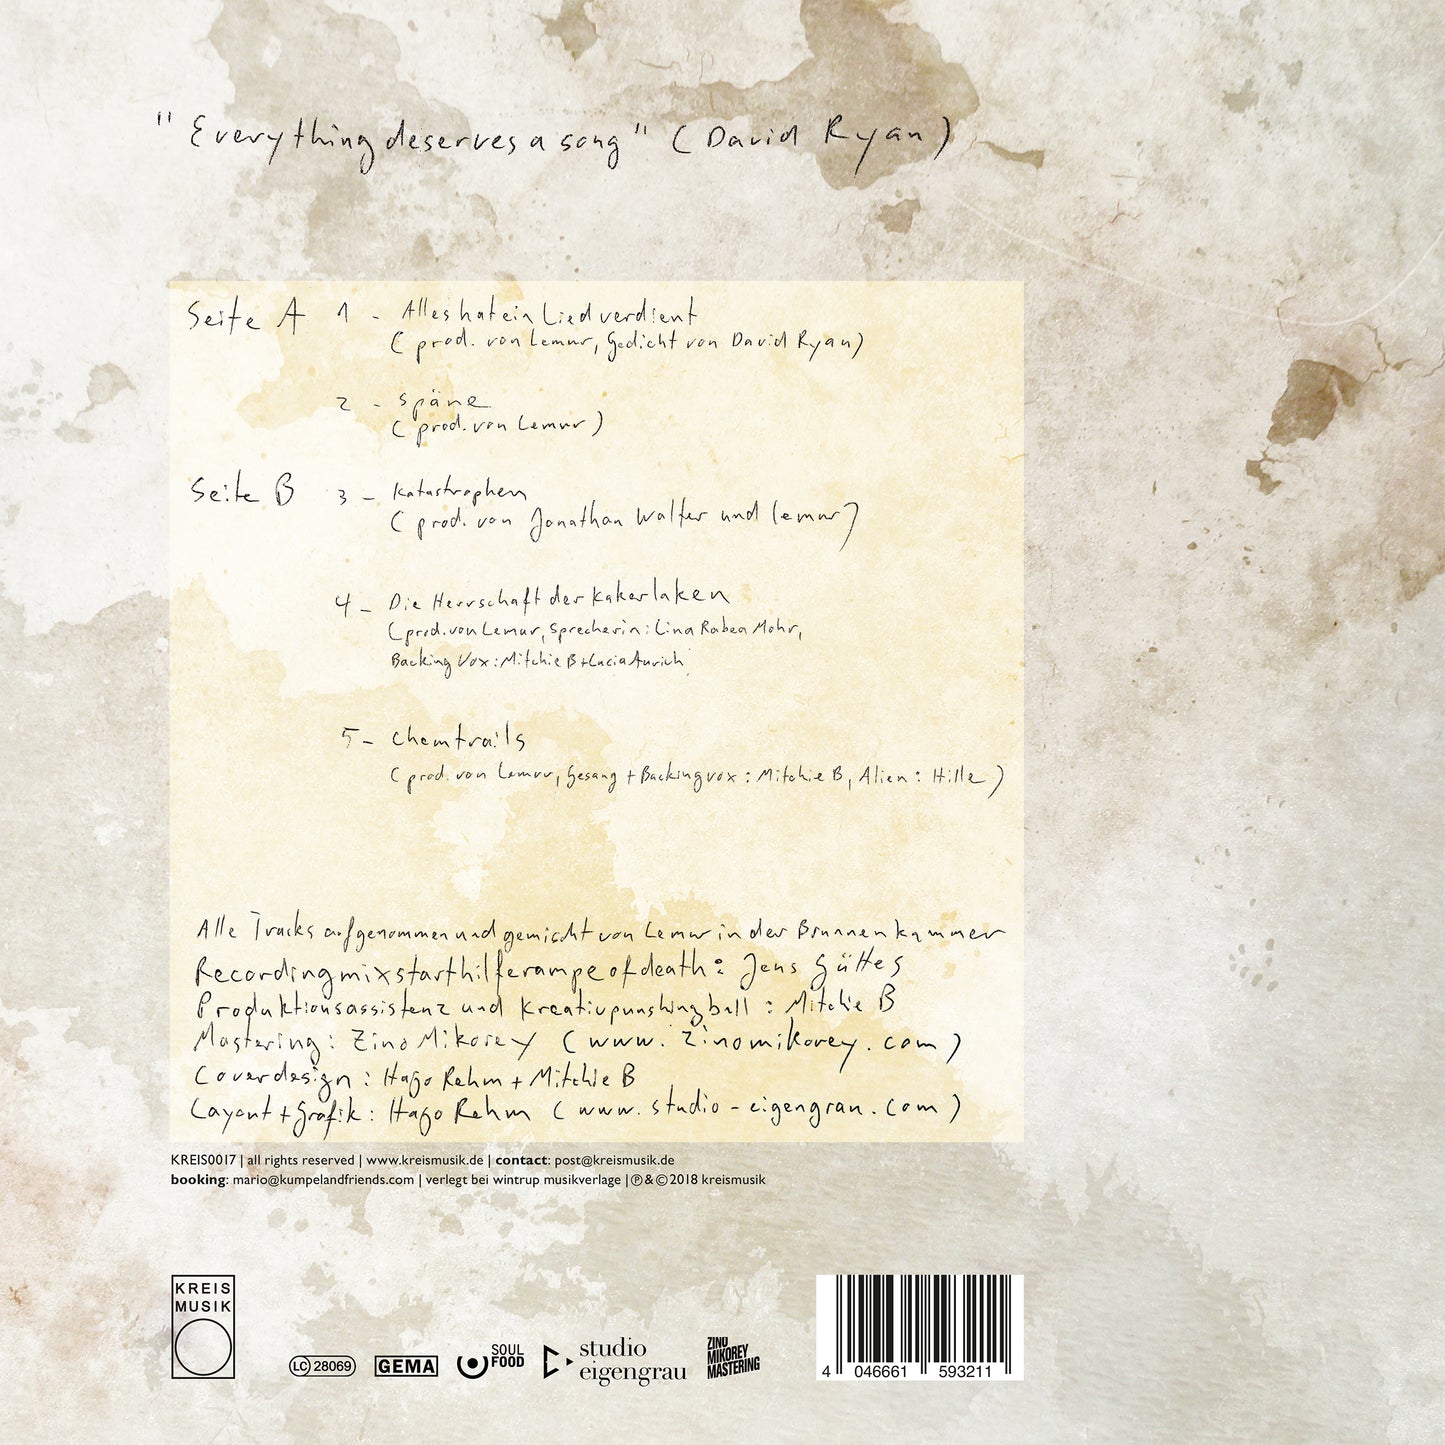 "Everything deserves a song" (David Ryan)
Seite A 1 - Alles hat ein Lied verdient
(prod. von Lemur, Gedicht von David Ryan)
2 - späne
(prod. von Lemur)
Seite B 3 - Katastrophen
(prod. von Jonathan Walter und Lemur)
4 - Die Herrschaft der Kakerlaken
(prod. von Lemur, Sprecherin: Lina Rabea Mohr,
Backing Vox: Mitchie B + Lucia Aurich
5 - Chemtrails
(prod. von Lemur, Gesang + Backingvox: Mitchie B, Alien: Hille)
Alle Tracks aufgenommen und gemischt von Lemur in der Brunnenkammer
Recordingmixstarthilferampeofdeath: Jens Güttes
Produktionsassistenz und Kreativpunshingball: Mitchie B
Mastering: Zino Mikorey (www.zinomikorey.com)
Coverdesign: Hajo Rehm + Mitchie B
Layout + Grafik: Hajo Rehm (www.studio-eigengrau.com)
KREIS0017 | all rights reserved | www.kreismusik.de | contact: post@kreismusik.de
booking: mario@kumpelandfriends.com | verlegt bei wintrup musikverlage | ℗ & © 2018 kreismusik
KREIS
MUSIK
LC 28069
GEMA
SOUL
FOOD
studio
eigengrau
ZINO
MIKOREY
MASTERING
4 046661 593211